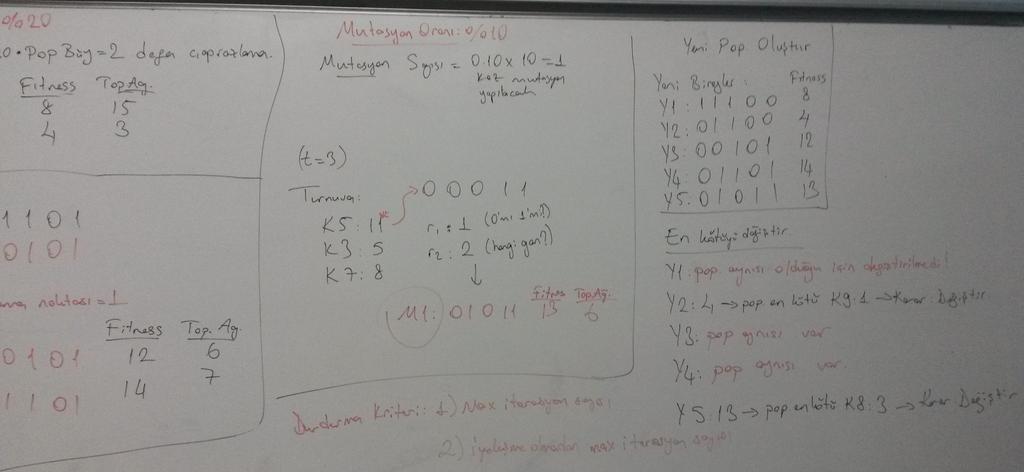 %20
0. Pop Büy=2 değer çaprazlama.
Fitness Top Ag.
8 15
4 3
1 1 0 1
0 1 0 1
noktası = 1
Fitness Top. Ag.
0 1 0 1 12 6
1 1 0 1 14 7
Mutasyon Oranı: %10
Mutasyon Sayısı = 0.10 x 10 = 1
kez mutasyon
yapılacak
(t=3)
Turnuva:
K5: 11* → 0 0 0 1 1
K3: 5
K7: 8
r1: 1 (0'mı 1'mi?)
r2: 2 (hangi gen?)
↓
Fitnes Top.Ağ.
M1: 0 1 0 1 1 13 6
Durdurma Kriteri: 1) Max iterasyon sayısı
2) iyileşme olmadan max iterasyon sayısı
Yeni Pop Oluştur
Yeni Bireyler: Fitness
Y1: 1 1 1 0 0 8
Y2: 0 1 1 0 0 4
Y3: 0 0 1 0 1 12
Y4: 0 1 1 0 1 14
Y5: 0 1 0 1 1 13
En kötüyü değiştir.
Y1: pop. aynısı olduğu için değiştirilmedi!
Y2: 4 → pop. en kötü K9: 1 → Karar: Değiştir
Y3: pop aynısı var
Y4: pop aynısı var.
Y5: 13 → pop en kötü K8: 3 → Karar: Değiştir